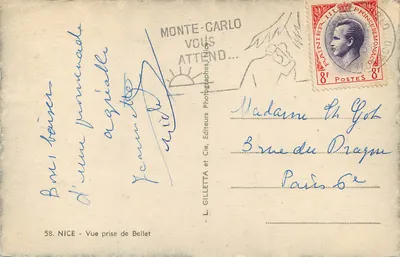 MONTE-CARLO
VOUS
ATTEND...
RAINIER III PRINCE DE MONACO
8F POSTES 8F
Bons baisers
d'une promenade
agréable
Jeannette
Madame Ch Got
3 rue du Dragon
Paris 6e
L. GILLETTA et Cie, Editeurs Photographes, Nice
58. NICE - Vue prise de Bellet